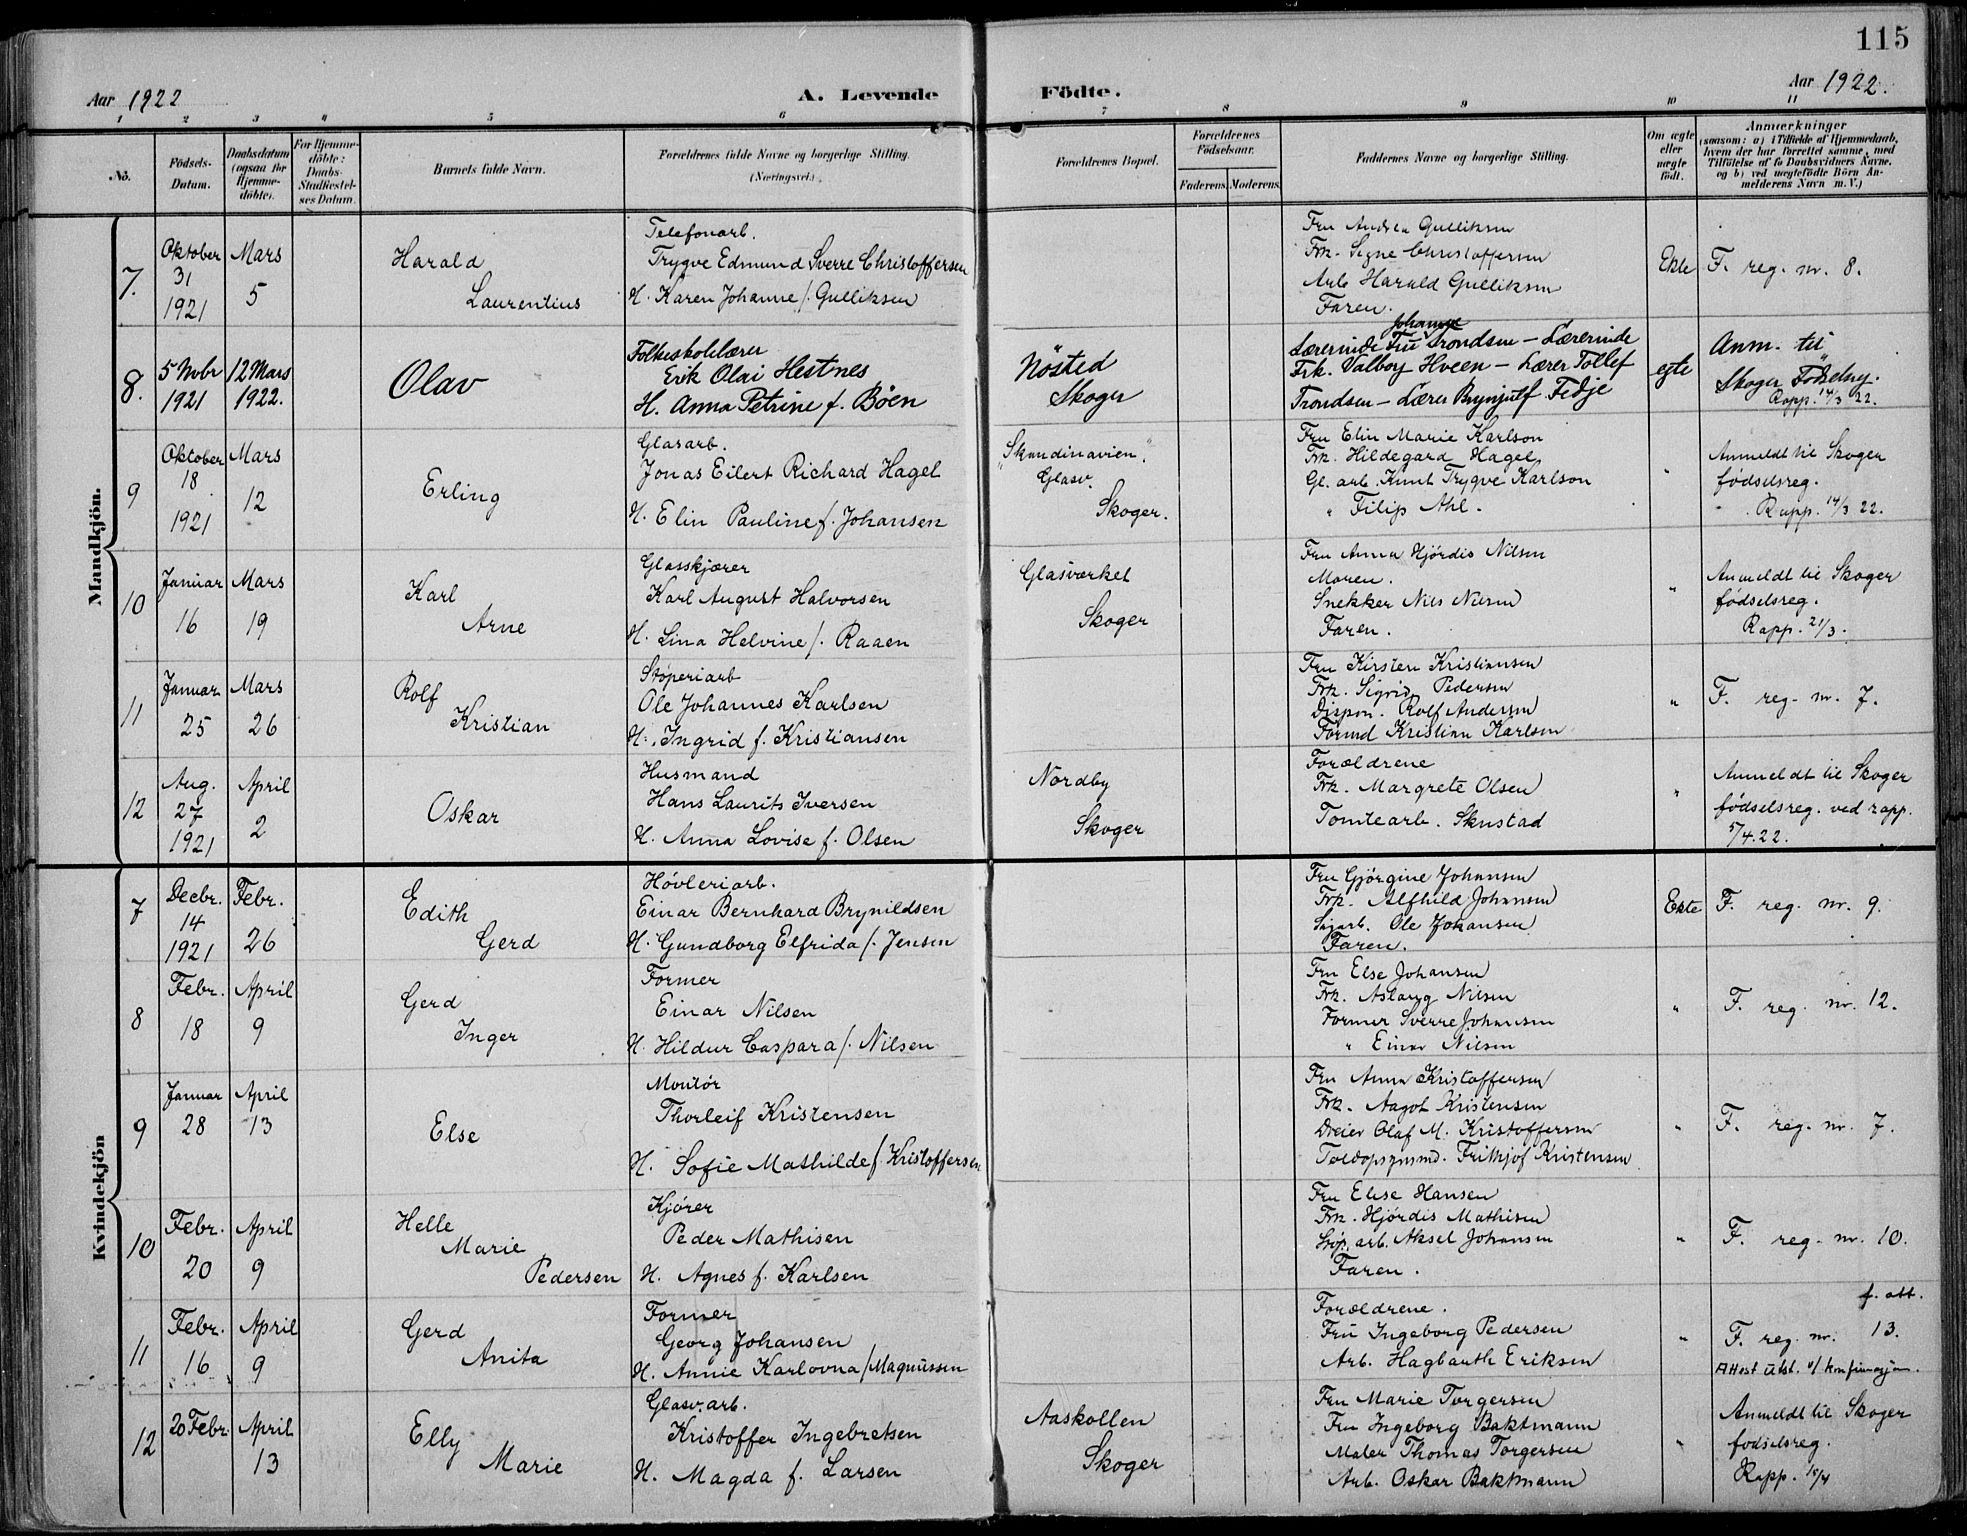 115
Aar 1922
A. Levende Födte.
Aar 1922.
1 2 3 4 5 6 7 8 9 10 11
No.
Födsels-Datum.
Daabsdatum (ogsaa for Hjemme-döbte).
For Hjemme-döbte: Daabs-Stadfæstel-ses Datum.
Barnets fulde Navn.
Forældrenes fulde Navne og borgerlige Stilling. (Næringsvei.)
Forældrenes Bopæl.
Forældrenes Födselsaar.
Faderens. Moderens.
Faddernes Navne og borgerlige Stilling.
Om ægte eller uægte født.
Anmærkninger
(saasom: a) i Tilfælde af Hjemmedaab,
hvem der har forrettet samme, med
Tilföielse af to Daabsvidners Navne,
og b) ved uægtefödte Börn An-
melderens Navn m. V.)
Mandkjön.
7.
Oktober 31 1921
Mars 5
Harald Laurentius
Telefonarb.
Trygve Edmund Sverre Christoffersen
H. Karen Johanne f. Gulliksen
Fru Andrea Gulliksen
Frk. Signe Christoffersen
Arb Harald Gulliksen
Faren.
Ekte
F. reg. nr. 8.
8.
5 Novbr 1921
12 Mars 1922.
Olav
Folkeskolelærer
Erik Olai Hestnes
H. Anna Petrine f. Böen
Nösted
Skoger
Johanne
Lærerinde Fru Trondsen – Lærerinde
Frk. Valborg Hveen – Lærer Tollef
Trondsen – Lærer Brynjulf Fedje
egte
Anm. til
Skoger Födselreg.
Rapp. 14/3 22.
9
Oktober 18 1921
Mars 12
Erling
Glasarb.
Jonas Eilert Richard Hagel
H. Elin Pauline f. Johansen
"Skandinavien"
Glasv.
Skoger.
Fru Elin Marie Karlson
Frk. Hildegard Hagel
Gl. arb. Knut Trygve Karlson
" Filip Ahl.
"
Anmeldt til Skoger
fødselsreg.
Rapp. 14/3 22.
10
Januar 16
Mars 19
Karl Arne
Glasskjærer
Karl August Halvorsen
H. Lina Helvine f. Raaen
Glasværket
Skoger
Fru Anna Hjørdis Nilsen
Moren.
Snekker Nils Nilsen
Faren.
"
Anmeldt til Skoger
fødselsreg.
Rapp. 21/3.
11
Januar 25
Mars 26
Rolf Kristian
Støperiarb
Ole Johannes Karlsen
H. Ingrid f. Kristiansen
Fru Kirsten Kristiansen
Frk. Sigrid Pedersen
Dispon. Rolf Andersen
Formd Kristian Karlsen
"
F. reg. nr. 7.
12
Aug. 27 1921
April 2
Oskar
Husmand
Hans Laurits Iversen
H. Anna Lovise f. Olsen
Nordby
Skoger
Forældrene
Frk. Margrete Olsen
Tomtearb. Skustad
"
Anmeldt til Skoger
fødselsreg. ved rapp.
5/4.22.
Kvindekjön
7
Decbr. 14 1921
Febr. 26
Edith Gerd
Høvleriarb.
Einar Bernhard Brynildsen
H. Gundborg Elfrida f. Jensen
Fru Gjørgine Johansen
Frk. Alfhild Johansen
Ole Johansen
Faren.
Ekte
F. reg. nr. 9.
8
Febr. 18
April 9
Gerd Inger
Former
Einar Nilsen
H. Hildur Caspara f. Nilsen
Fru Else Johansen
Frk. Aslaug Nilsen
Former Sverre Johansen
" Einar Nilsen
"
F. reg. nr. 12.
9
Januar 28
April 13
Else
Montør
Thorleif Kristensen
H. Sofie Mathilde f. Kristoffersen
Fru Anna Kristoffersen
Frk. Aagot Kristensen
Dreier Olaf M. Kristoffersen
Toldopsynsmd. Frithjof Kristensen
"
F. reg. nr. 7.
10
Febr. 20
April 9
Helle Marie Pedersen
Kjører
Peder Mathisen
H. Agnes f. Karlsen
Fru Elise Hansen
Frk. Hjørdis Mathisen
Støp. arb. Aksel Johansen
Faren.
"
F. reg. nr. 10.
11
Febr. 16
April 9
Gerd Anita
Former
Georg Johansen
H. Annie Karlovna f. Magnussen
Forældrene.
Fru Ingeborg Pedersen
Arb. Hagbarth Eriksen
"
f. att.
F. reg. nr. 13.
Attest utst. v/ konfirmasjon.
12
20 Febr
April 13
Elly Marie
Glasv. arb.
Kristoffer Ingebretsen
H. Magda f. Larsen
Aaskollen
Skoger
Fru Marie Torgersen
Fru Ingeborg Baktmann
Maler Thomas Torgersen
Arb. Oskar Baktmann
"
Anmeldt til Skoger
fodselsreg.
Rapp. 15/4